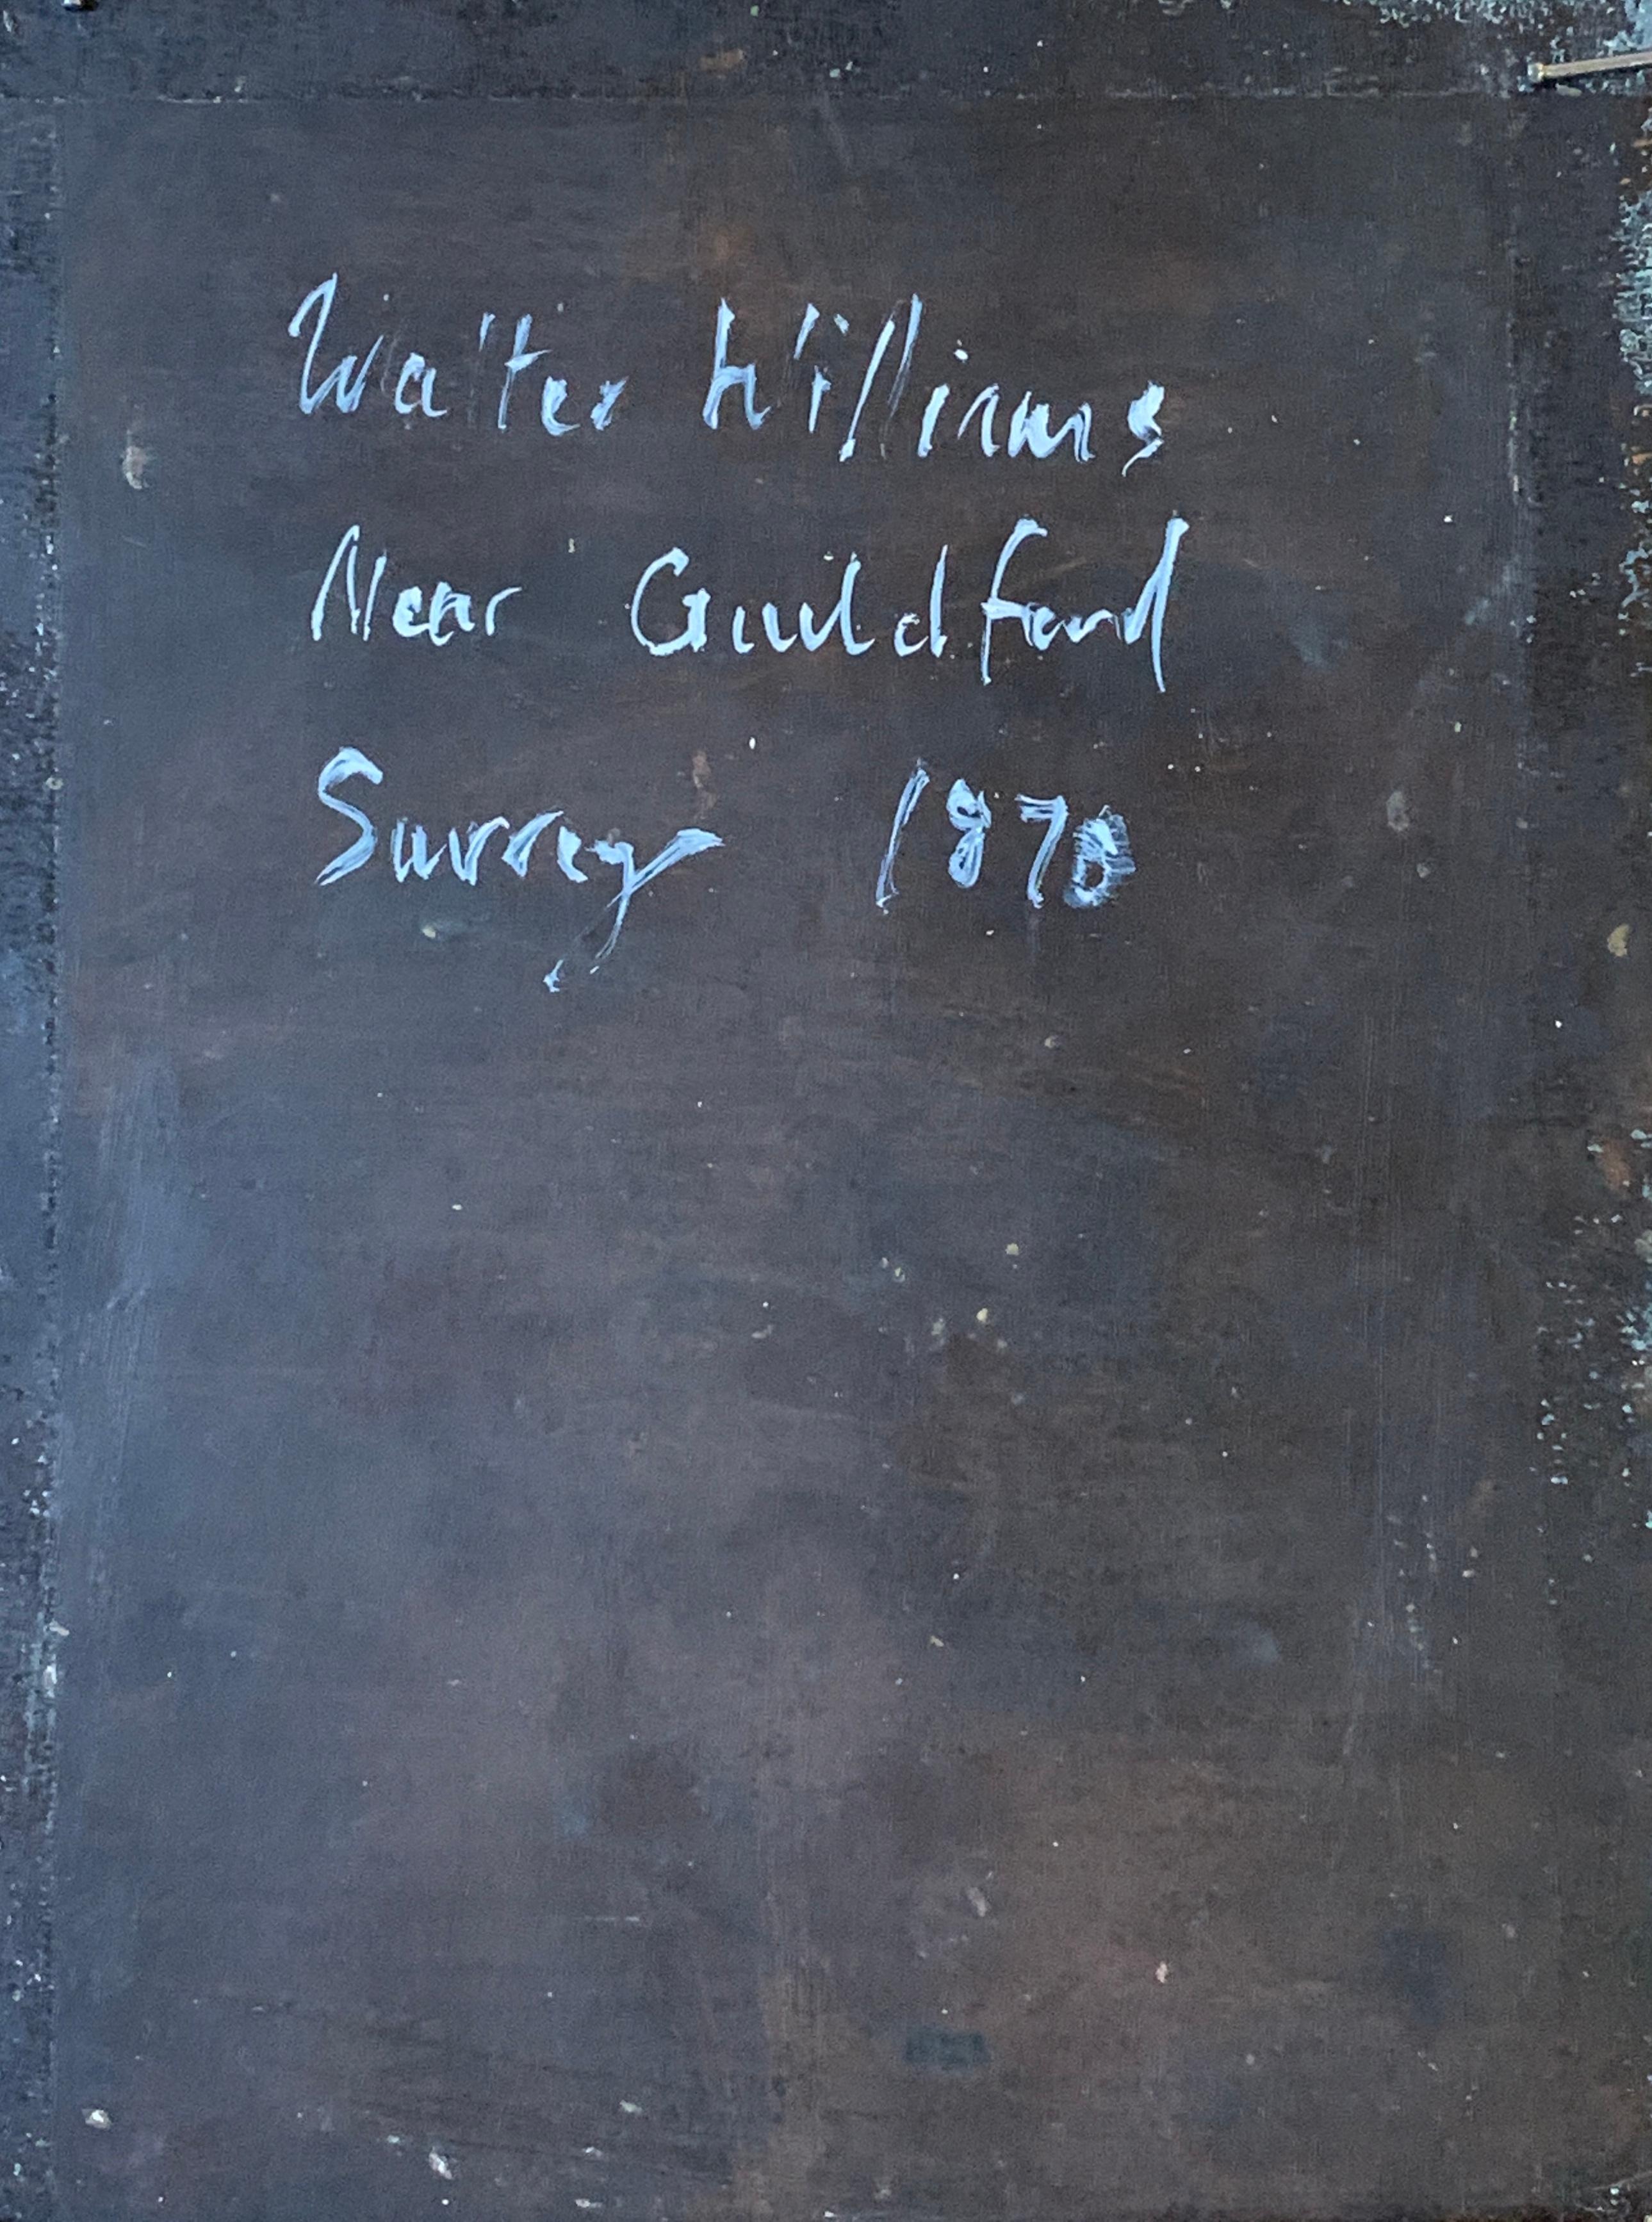 Walter Williams
Near Guildford
Surrey 1870